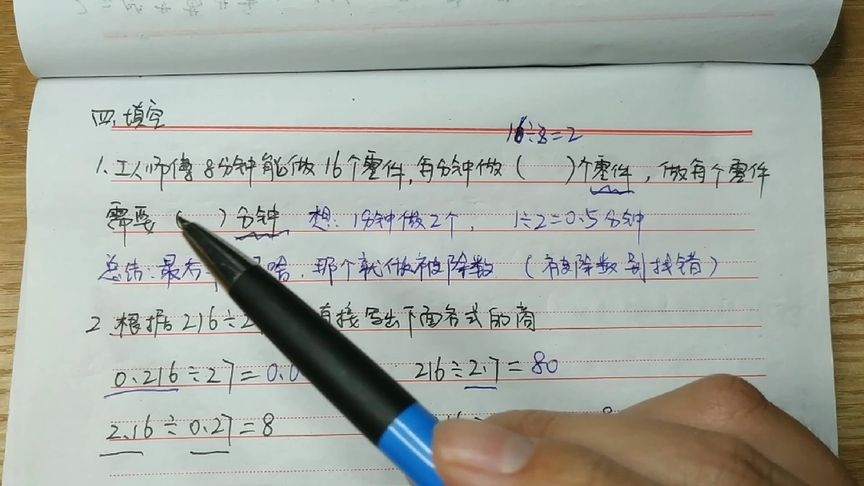 四、填空
16÷8=2
1.工人师傅8分钟能做16个零件,每分钟做( )个零件,做每个零件
需要( )分钟 想:1分钟做2个, 1÷2=0.5分钟
总结:最后 啥,那个就做被除数 (被除数别找错)
2 根据216÷2 直接写出下面各式的商
0.216÷27=0.0 216÷2.7=80
2.16÷0.27=8